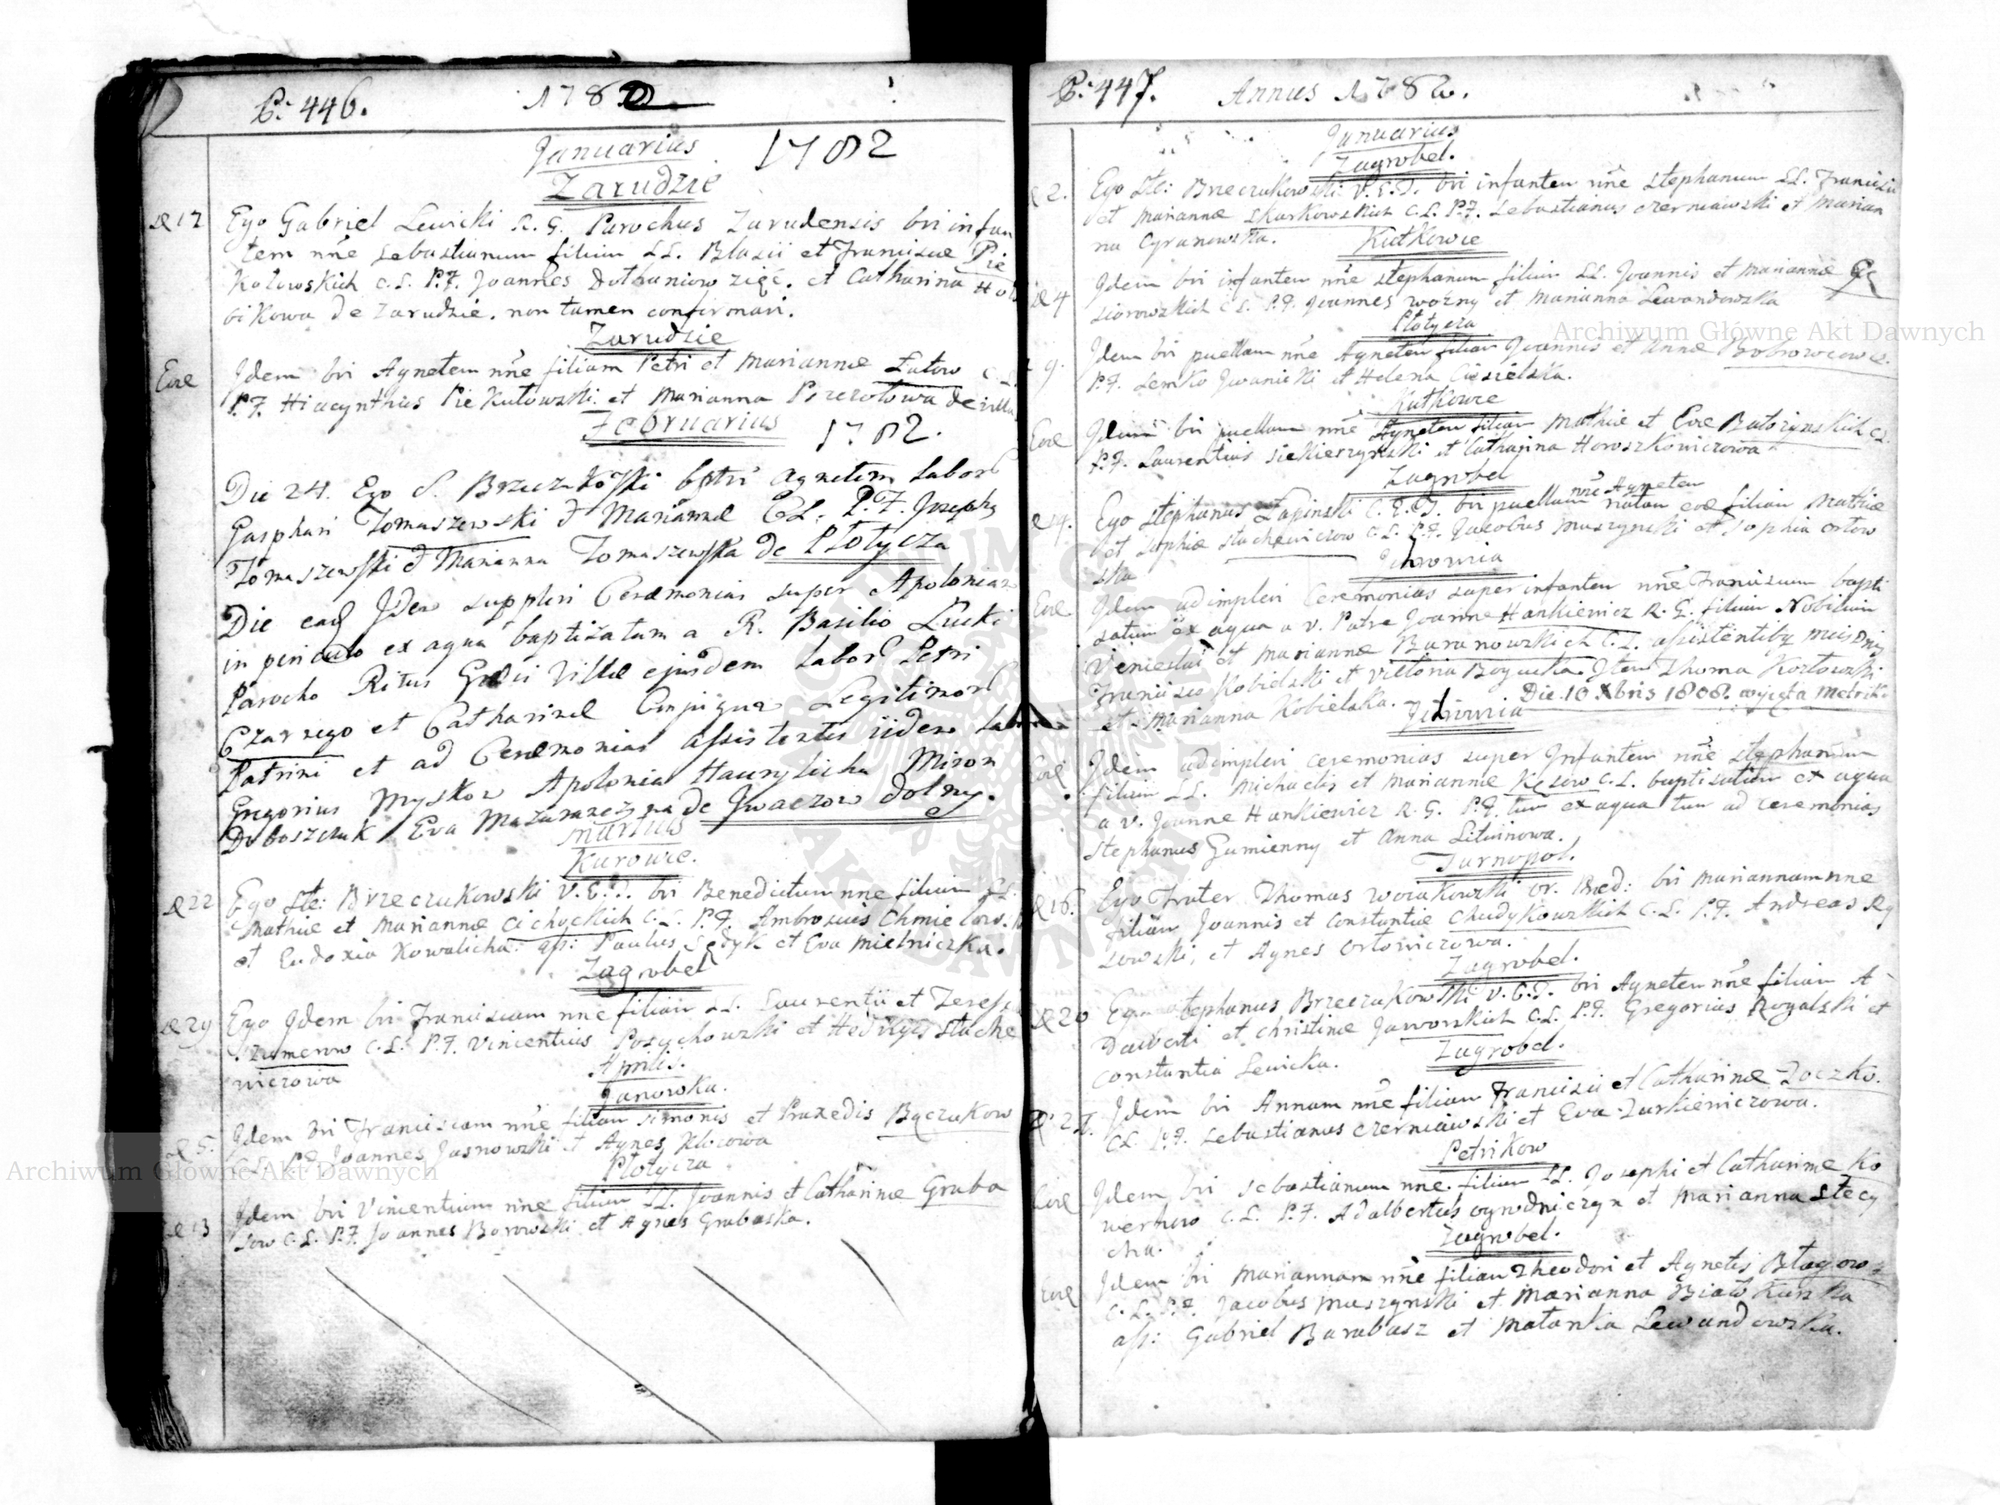 P: 446. 1782
Januarius 1782
Zarudzie
d 12 Ego Gabriel Lewicki R. G. Parochus Zarudensis bri infan
tem nne Sebastianum filium LL. Blasii et Franciscae Pie
Kotowskich C. L. P.F. Joannes zięć. et Catharina
bikowa de Zarudzie. non tamen confirmavi.
Zarudzie
Eod Jdem bri Agnetem nne filiam Petri et Mariannae Lutow C. L.
P. F. Hiacynthus Piekutowski et Marianna de villa
Februarius 1782.
Die 24. Ego S. Brzeczkoski bptri Agnetem Labor
Gasphari Tomaszewski & Mariannae C L. P. F. Joseph
Tomaszewski & Marianna Tomaszewska de Płotycza
Die ead Jdem supplevi Ceremonias super Apoloniam
in periculo ex aqua baptizatam a R. Basilio Lucki
Parocho Ritus Graeci Villae ejusdem Labor Petri
Czarnego et Catharinae Conjugum Legitimor
Patrini et ad Ceremonias assistentes iidem Lab
Gregorius Myskow Apolonia Hawrylicha Miron
Doboszczuk Eva de Jwaczow dolny.
Martius
Kurowce.
d 22 Ego Ste: Brzeczukowski V. C. T. bri Benedictum nne filium LL.
Mathiae et Mariannae Cichockich C. L. P. F. Ambrosius Chmielow.
et Eudoxia Kowalicha. ass: Paulus Sedyk et Eva Mielniczka.
Zagrobel
d 29 Ego Jdem bri Franciscam nne filiam LL. Laurentii et Teresa
Zumerow C. L. P. F. Vincentius Posychowski et Hedvigis Stache
wiczowa
Aprilis.
Janowka.
d 5. Jdem bri Franciscam nne filiam Simonis et Praxedis Bączukow
C. L. P. F. Joannes Jasnowski et Agnes Klicowa
Płotycza
d 13 Jdem bri Vincentium nne filium LL. Joannis et Catharinae Graba
sow C. L. P. F. Joannes Borowski et Agnes Grabaska.
P: 447. Annus 1782.
Januarius
Zagrobel.
d 2. Ego Ste: Brzeczukowski V. C. T. bri infantem nne Stephanum LL. Francisci
et Mariannae Skarkowskich C. L. P. F. Sebastianus Czerniawski et Marian
na Cyranowska.
Kutkowce
d 4 Jdem bri infantem nne Stephanum filium LL. Joannis et Mariannae
siorowskich C. L. P. F. Joannes Woźny et Marianna Lewandowska
Płotycza
9. Jdem bri puellam nne Agnetem filiam Joannis et Annae Bobrowcow C.L.
P. F. Lemko Jwanicki et Helena Ciesielska.
Kutkowce
Eod Jdem bri puellam nne Agnetem filiam Mathiae et Evae Batorynskich C.L.
P. F. Laurentius Siekierzynski et Catharina Horoszkowiczowa
Zagrobel
d 19. Ego Stephanus Łapinski C. E. T. bri puellam nne Agnetem natam eod filiam Mathiae
et Sophiae Stachewiczow C. L. P. F. Jacobus Muszynski et Sophia Orłow
ska
Jchrownia
Eod Jdem adimplevi Ceremonias super infantem nne Franciscum bapti
satum ex aqua a V. Patre Joanne Hankiewicz R. G. filium Nobilium
Venceslai et Mariannae Baranowskich C. L. assistentibus
Francisco Kobielski et Victoria Bogucka. Jtem Thoma Kozłowski
et Marianna Kobielska. Die 10 Xbris 1808. wyjęta Metryka
Jchrownia
Eod Jdem adimplevi ceremonias super Jnfantem nne Stephanum
filium LL. Michaelis et Mariannae Kęsow C. L. baptisatum ex aqua
a V. Joanne Hankiewicz R. G. P. F. tum ex aqua tum ad ceremonias
Stephanus Gumienny et Anna Litwinowa.
Tarnopol.
d 16. Ego Frater Thomas Woiakowski Or. Praed: bri Mariannam nne
filiam Joannis et Constantiae Chudykowskich C. L. P. F. Andreas
sowski, et Agnes Orłowiczowa.
Zagrobel.
d 20 Ego Stephanus Brzeczukowski V. C. T. bri Agnetem nne filiam A
dalberti et Christinae Jaworskich C. L. P. F. Gregorius Rogalski et
Constantia Lewicka.
Zagrobel.
d 21. Jdem bri Annam nne filiam Francisci et Catharinae Zoczko.
C. L. P. F. Sebastianus Czerniawski et Eva Zurkiewiczowa.
Petrikow
Eod Jdem bri Sebastianum nne filium LL. Josephi et Catharinae Ko
werkow C. L. P. F. Adalbertus ogrodniczyn et Marianna Stecy
cha.
Zagrobel.
Eod Jdem bri Mariannam nne filiam Theodori et Agnetis
C. L. P. F. Jacobus Muszynski et Marianna
ass: Gabriel Barabasz et Matanka Lewandowska.
Archiwum Główne Akt Dawnych
Archiwum Główne Akt Dawnych